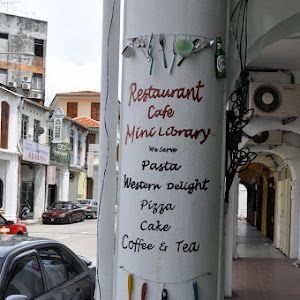 Restaurant
Cafe
Mini Library
We Serve
Pasta
Western Delight
Pizza
Cake
Coffee & Tea